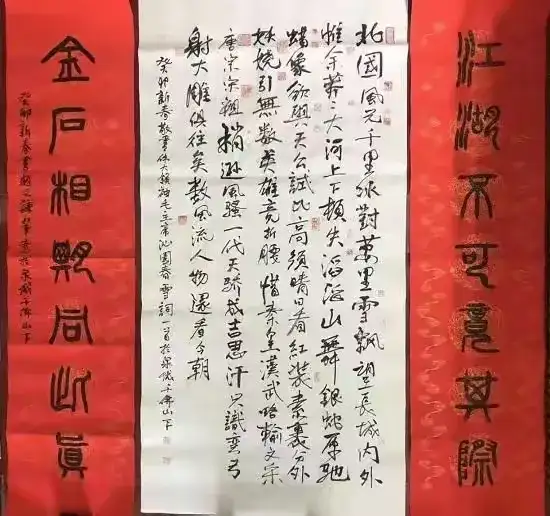 江湖不可竟其際
北國風光千里冰封萬里雪飄望長城內外
惟余莽々大河上下頓失滔滔山舞銀蛇原馳
蠟象欲與天公試比高須晴日看紅裝素裹分外
妖嬈引無數英雄競折腰惜秦皇漢武略輸文采
唐宗宋祖稍遜風騷一代天驕成吉思汗只識彎弓
射大雕俱往矣數風流人物還看今朝
癸卯新春敬書偉大領袖毛主席沁園春雪詞一首於泉城千佛山下
金石相同此真
癸卯新春書筆意於泉城千佛山下